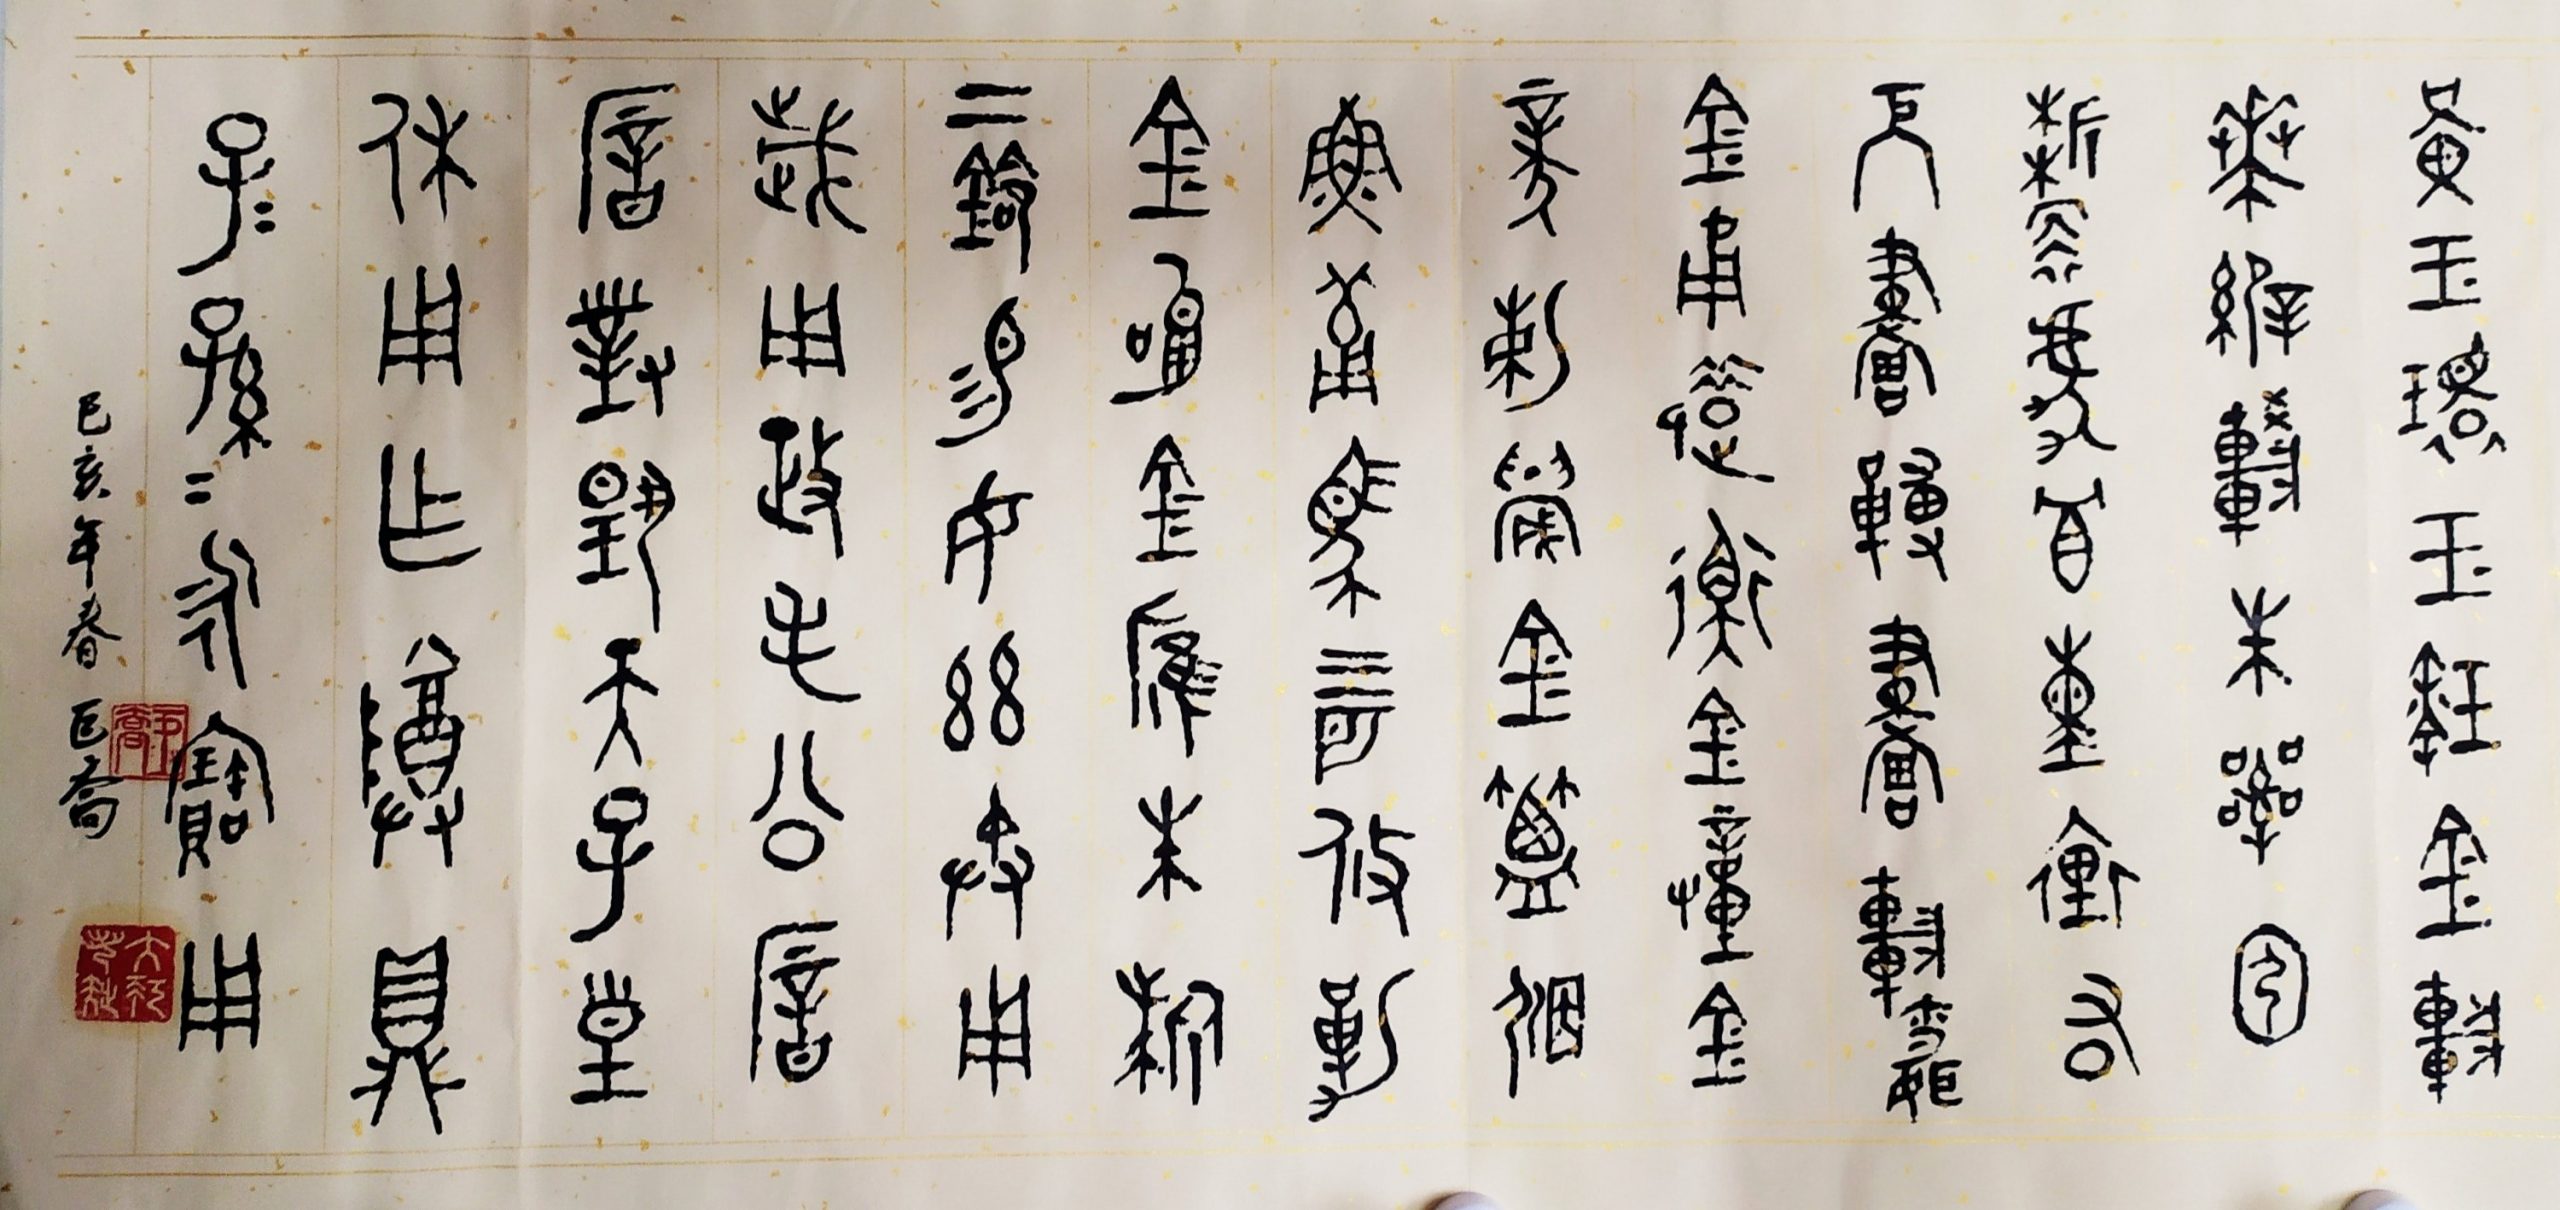 黃玉環玉瑹金車
𠦪縟較朱
靳虎冟熏裏右
厄畫畫
金甬錯衡金踵金
豙金簟弼
魚葡馬四匹攸勒
金金膺朱旂
二鈴易女茲用
歲用政毛公厝
厝對揚天子皇
休用乍尊鼎
子二孫二永寶用
己亥年春 巨喬